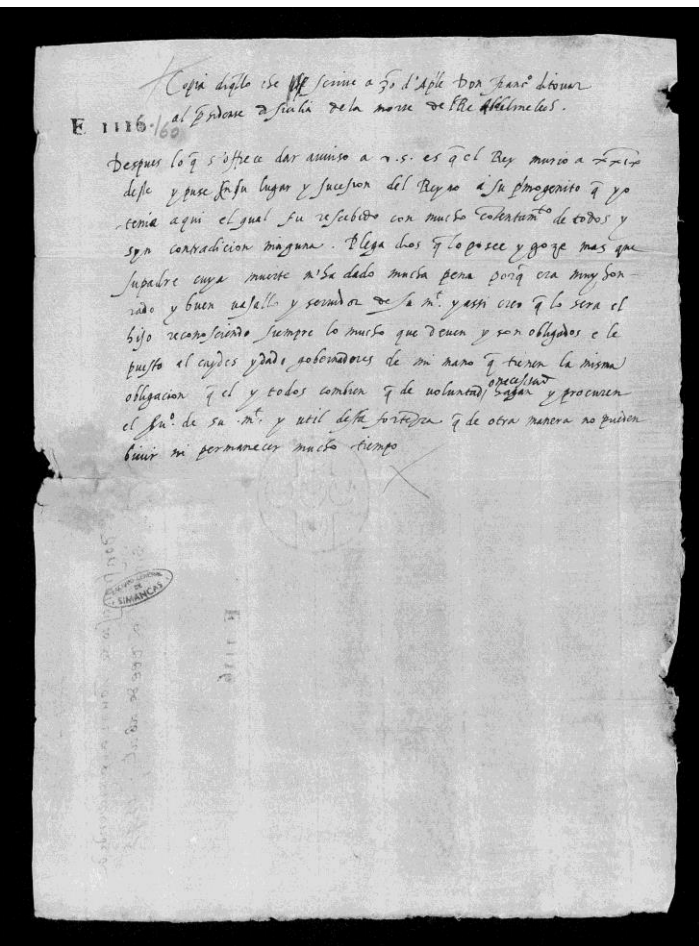 Copia di q̃llo che scriue a 30 d'Aple Don Franco di touar
al p̃sidente de sicilia de la morte del Re Abdelmelec.
E 1116. 160
Despues lo q̃ s'offrece dar auuiso a v. s. es q̃ el Rey murio a xxix
deste y puse en su lugar y sucesion del Reyno a su p̃mogenito q̃ yo
tenia aqui el qual fu rescebido con mucho contentamto de todos y
syn contradicion ninguna. Plega dios q̃ lo posee y goze mas que
su padre cuya muerte m'ha dado mucha pena porq̃ era muy hon-
rado y buen vasallo y seruidor de su mt. y assi creo q̃ lo sera el
hijo reconosciendo siempre lo mucho que deuen y son obligados e le
puesto alcaydes y dado gobernadores de mi mano q̃ tienen la misma
obligacion q̃ el y todos combien q̃ de voluntad o necessidad hagan y procuren
el suo. de su mt. y util desta forteza q̃ de otra manera no pueden
biuir ni permanecer mucho tiempo
ARCHIVO GENERAL
DE
SIMANCAS
E 1116